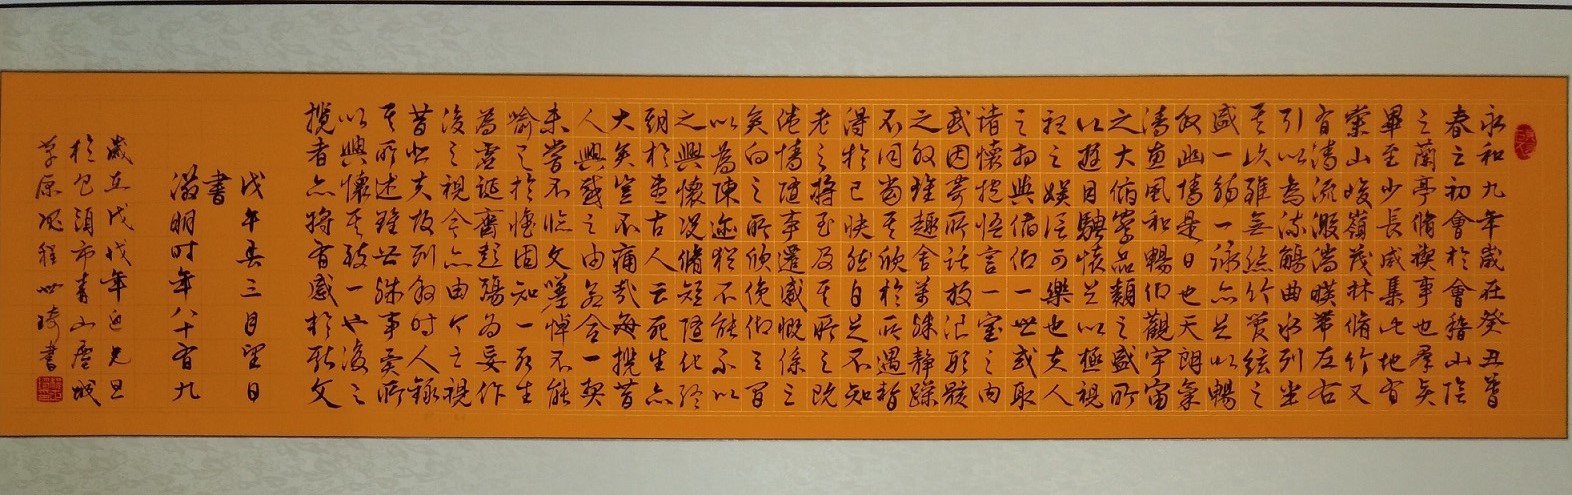 永和九年歲在癸丑暮
春之初會於會稽山陰
之蘭亭脩禊事也羣賢
畢至少長咸集此地有
崇山峻嶺茂林脩竹又
有清流激湍暎帶左右
引以為流觴曲水列坐
其次雖無絲竹管絃之
盛一觴一詠亦足以暢
敘幽情是日也天朗氣
清惠風和暢仰觀宇宙
之大俯察品類之盛所
以遊目騁懷足以極視
聽之娛信可樂也夫人
之相與俯仰一世或取
諸懷抱悟言一室之內
或因寄所託放浪形骸
之外雖趣舍萬殊靜躁
不同當其欣於所遇暫
得於己快然自足不知
老之將至及其所之既
倦情隨事遷感慨係之
矣向之所欣俛仰之間
以為陳迹猶不能不以
之興懷況脩短隨化終
期於盡古人云死生亦
大矣豈不痛哉每攬昔
人興感之由若合一契
未嘗不臨文嗟悼不能
喻之於懷固知一死生
為虛誕齊彭殤為妄作
後之視今亦由今之視
昔悲夫故列敘時人錄
其所述雖世殊事異所
以興懷其致一也後之
攬者亦將有感於斯文
戊午春三月望日
書
徵明時年八十有九
歲在戊戌年迎元旦
於包頭市青山
草原 程世琦書